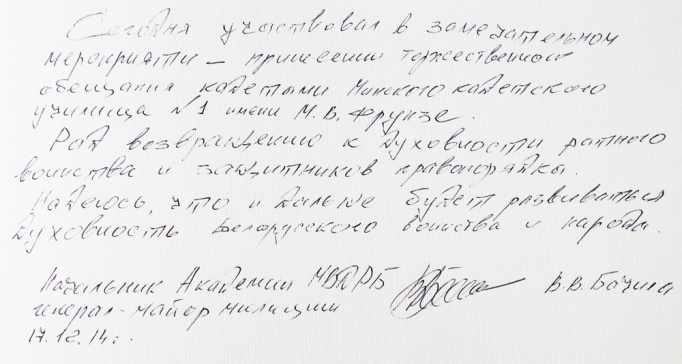 Сегодня участвовал в замечательном
мероприятии – принесении торжественной
обещания кадетами Минского кадетского
училища №1 имени М.В. Фрунзе.
Рад возвращению к духовности ратного
воинства и защитников правопорядка.
Надеюсь, что и дальше будет развиваться
духовность Белорусского воинства и народа.
Начальник Академии МВД РБ В.В. Бачила
генерал-майор милиции
17.12.14г.